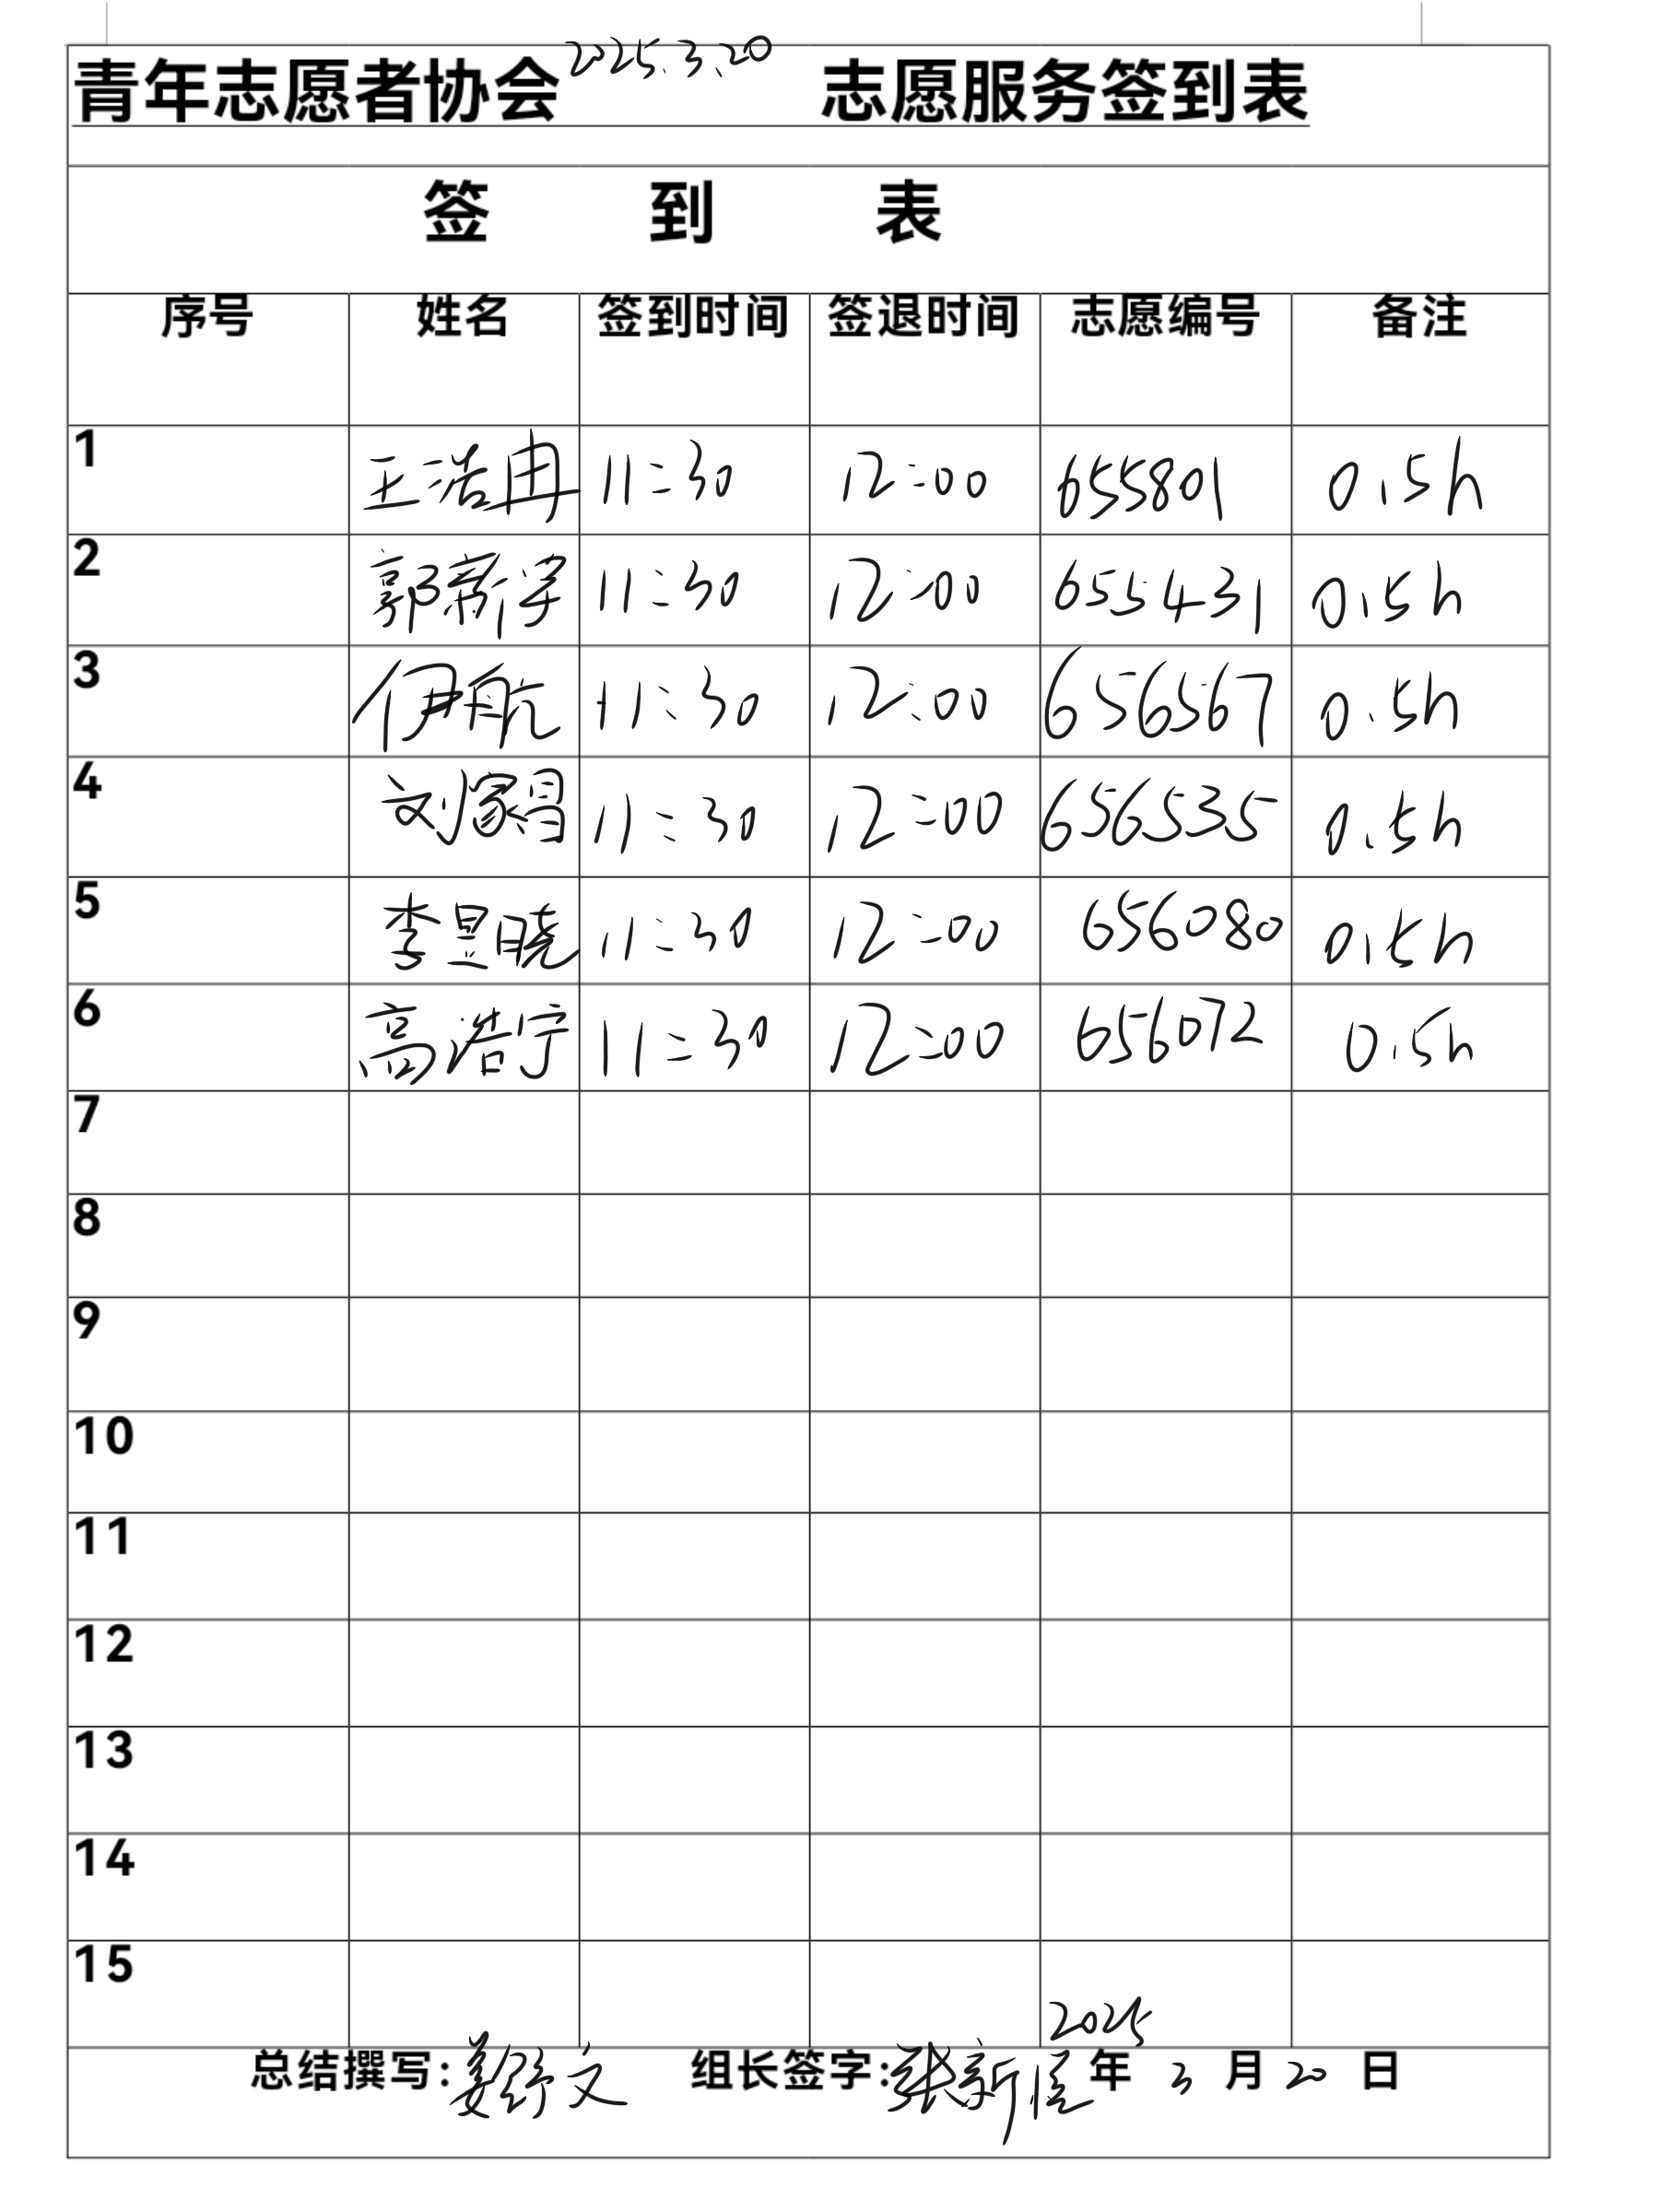 青年志愿者协会 2025.3.20 志愿服务签到表
签 到 表
序号 姓名 签到时间 签退时间 志愿编号 备注
1 王浩冉 11:30 12:00 655801 0.5h
2 郭 11:30 12:00 655431 0.5h
3 伊航 11:30 12:00 656567 0.5h
4 刘家 11:30 12:00 656535 0.5h
5 李昱晓 11:30 12:00 656080 0.5h
6 高浩宇 11:30 12:00 656072 0.5h
7
8
9
10
11
12
13
14
15
总结撰写: 文 组长签字: 2025年 3 月 20 日